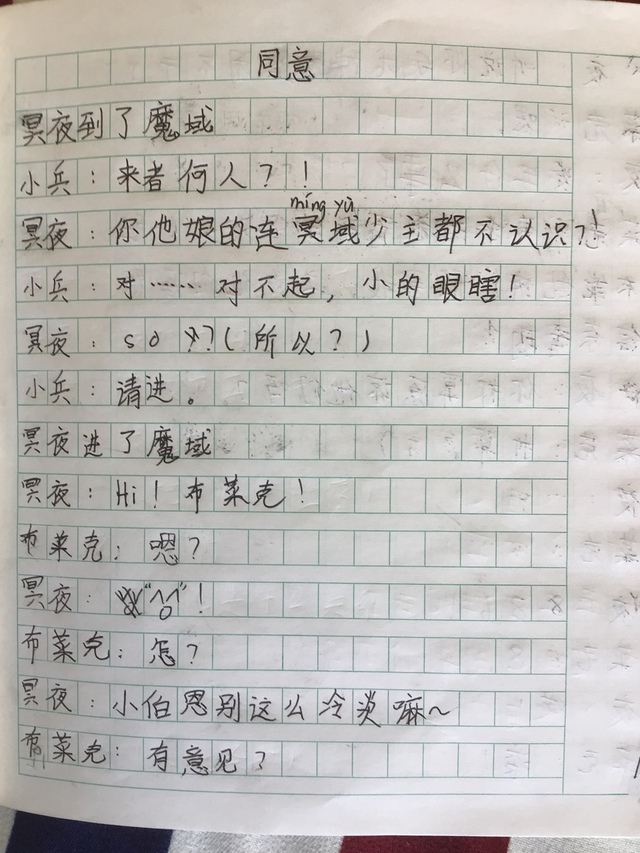 同意
冥夜到了魔域
小兵：来者何人？！
míng yù
冥夜：你他娘的连冥域少主都不认识?!
小兵：对……对不起，小的眼瞎！
冥夜：so ??(所以？)
小兵：请进。
冥夜进了魔域
冥夜：Hi！布莱克！
布莱克：嗯？
冥夜："^o^"！
布莱克：怎？
冥夜：小伯恩别这么冷淡嘛~
布莱克：有意见？